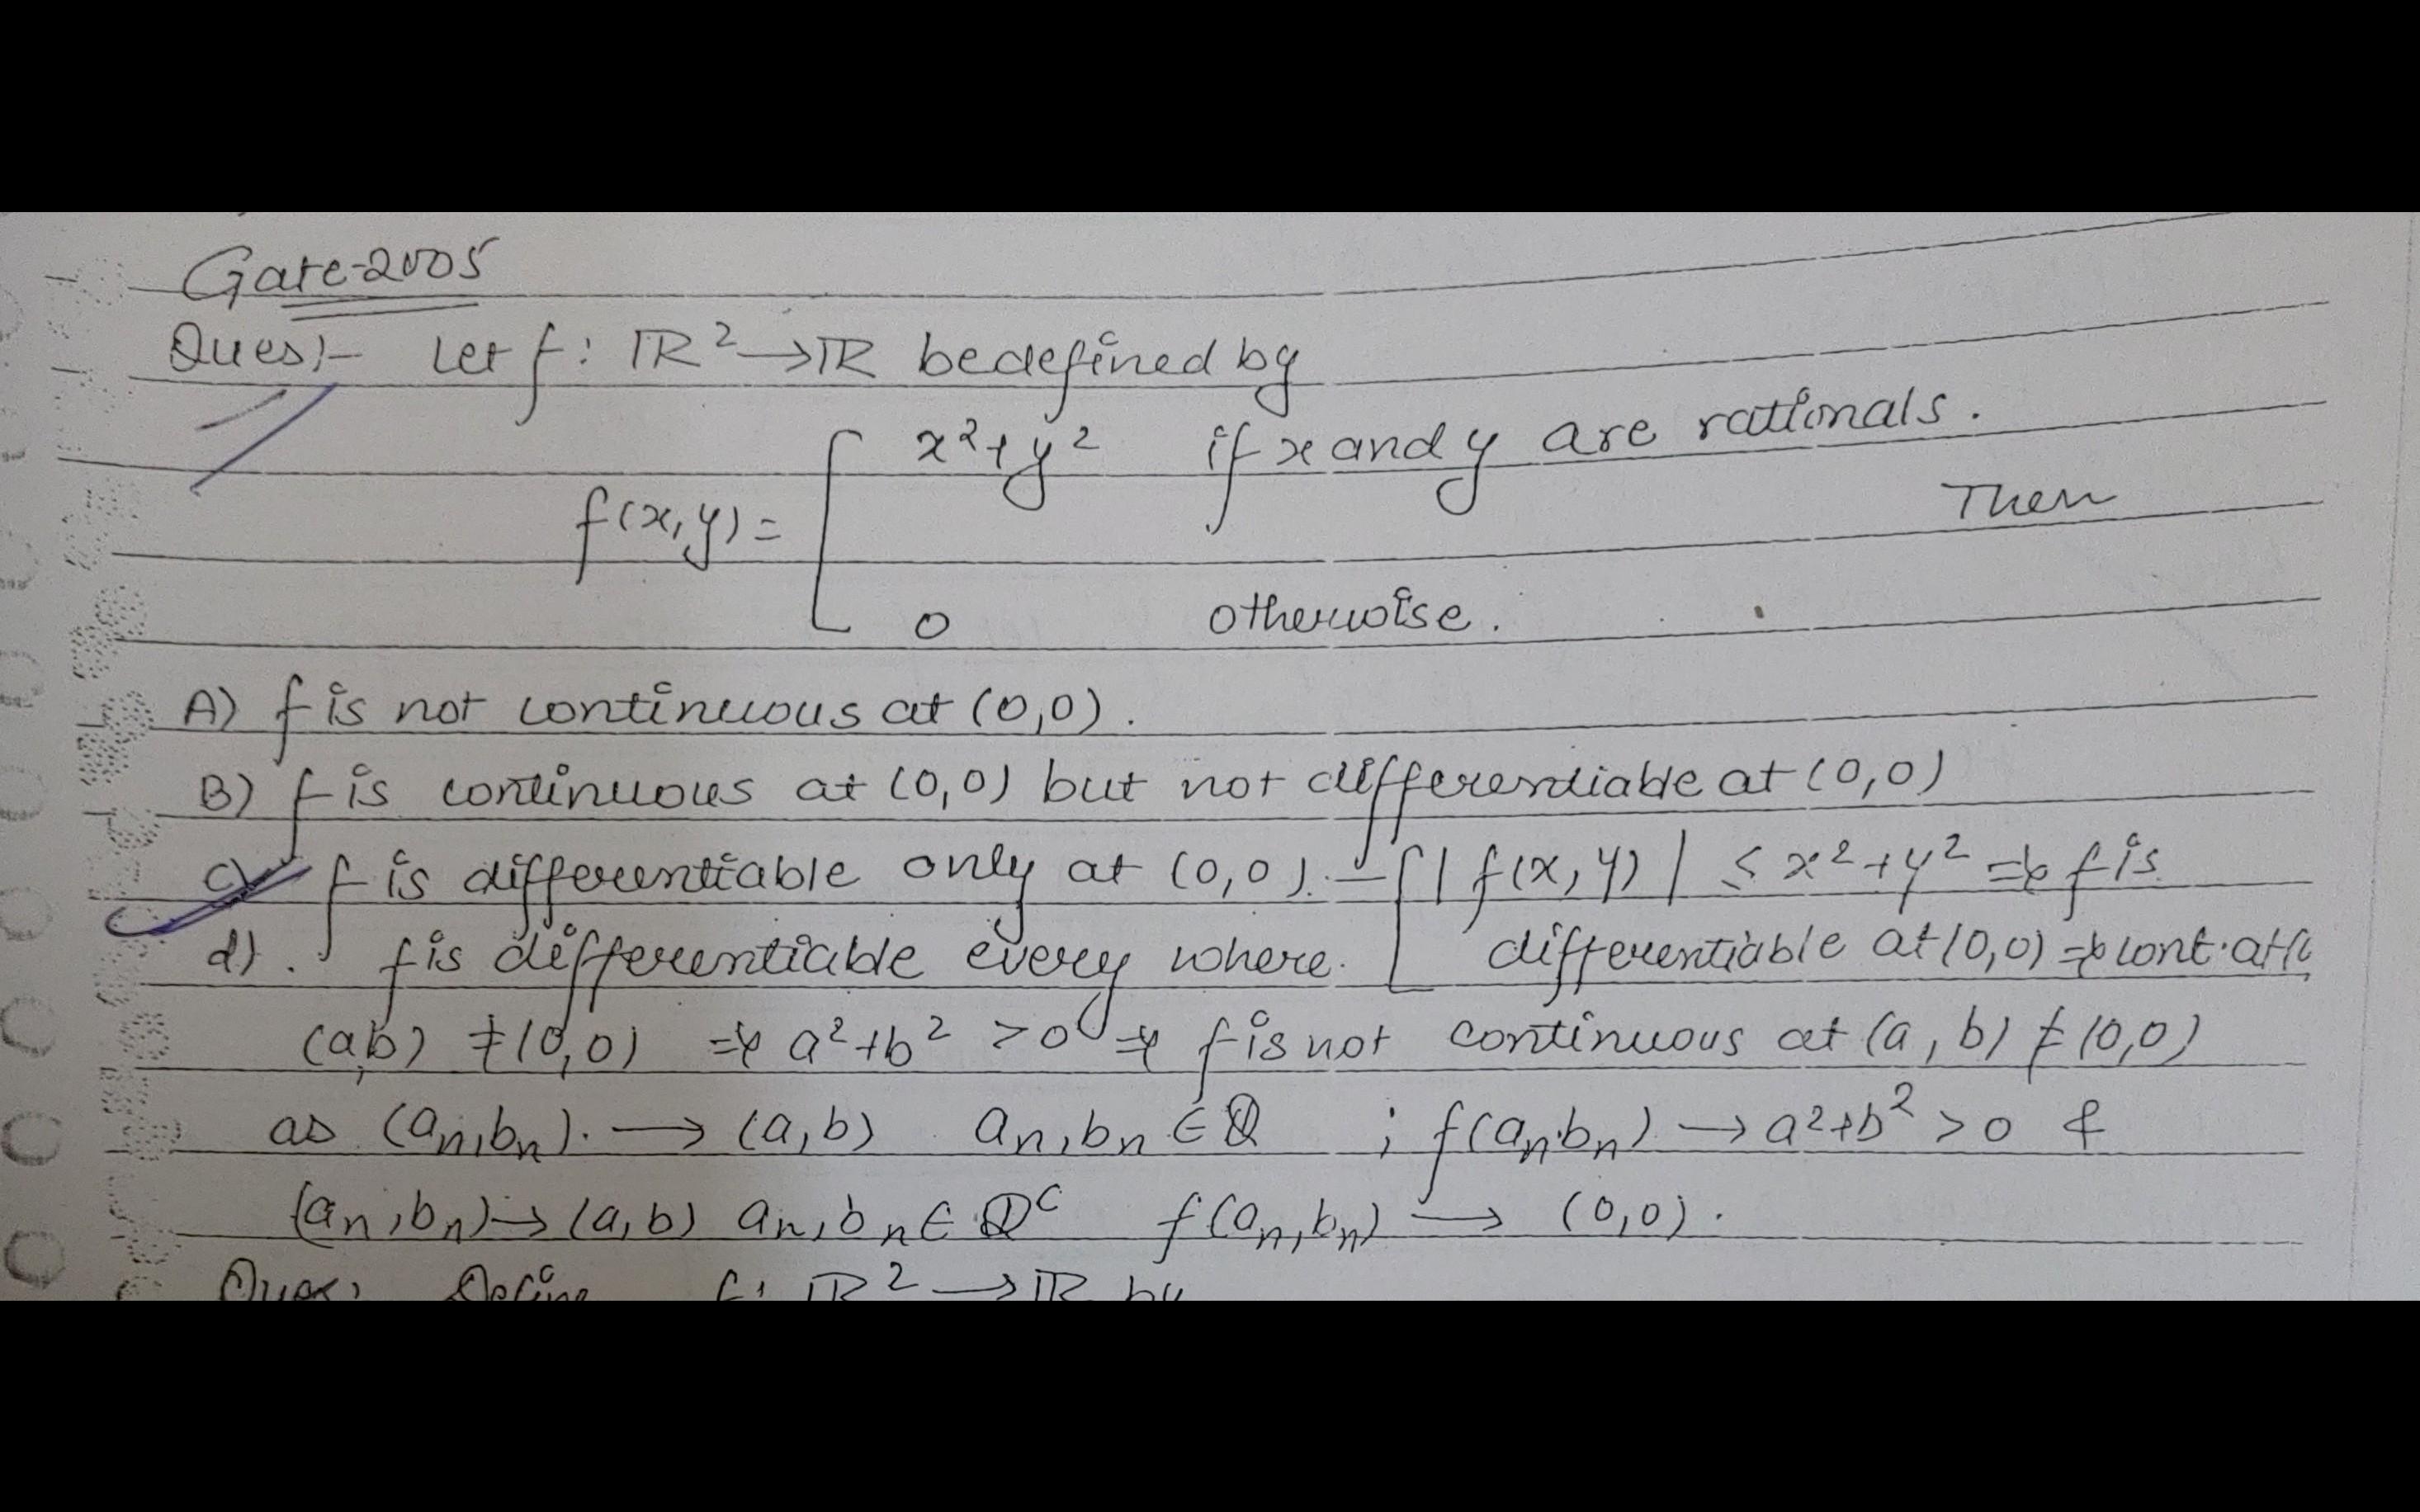 Gate-2005
Ques:- Let f: ℝ² → ℝ be defined by
x²+y² if x and y are rationals.
f(x,y) = Then
0 otherwise.
A) f is not continuous at (0,0).
B) f is continuous at (0,0) but not differentiable at (0,0)
c) f is differentiable only at (0,0). — [ |f(x,y)| ≤ x²+y² ⇒ f is
d). f is differentiable every where. differentiable at (0,0) ⇒ cont. at (
(a,b) ≠ (0,0) ⇒ a²+b² > 0 ⇒ f is not continuous at (a,b) ≠ (0,0)
as (aₙ,bₙ). → (a,b) aₙ,bₙ ∈ Q ; f(aₙ,bₙ) → a²+b² > 0 &
(aₙ,bₙ) → (a,b) aₙ,bₙ ∈ Qᶜ f(aₙ,bₙ) → (0,0).
Ques: Define f: ℝ² → ℝ by